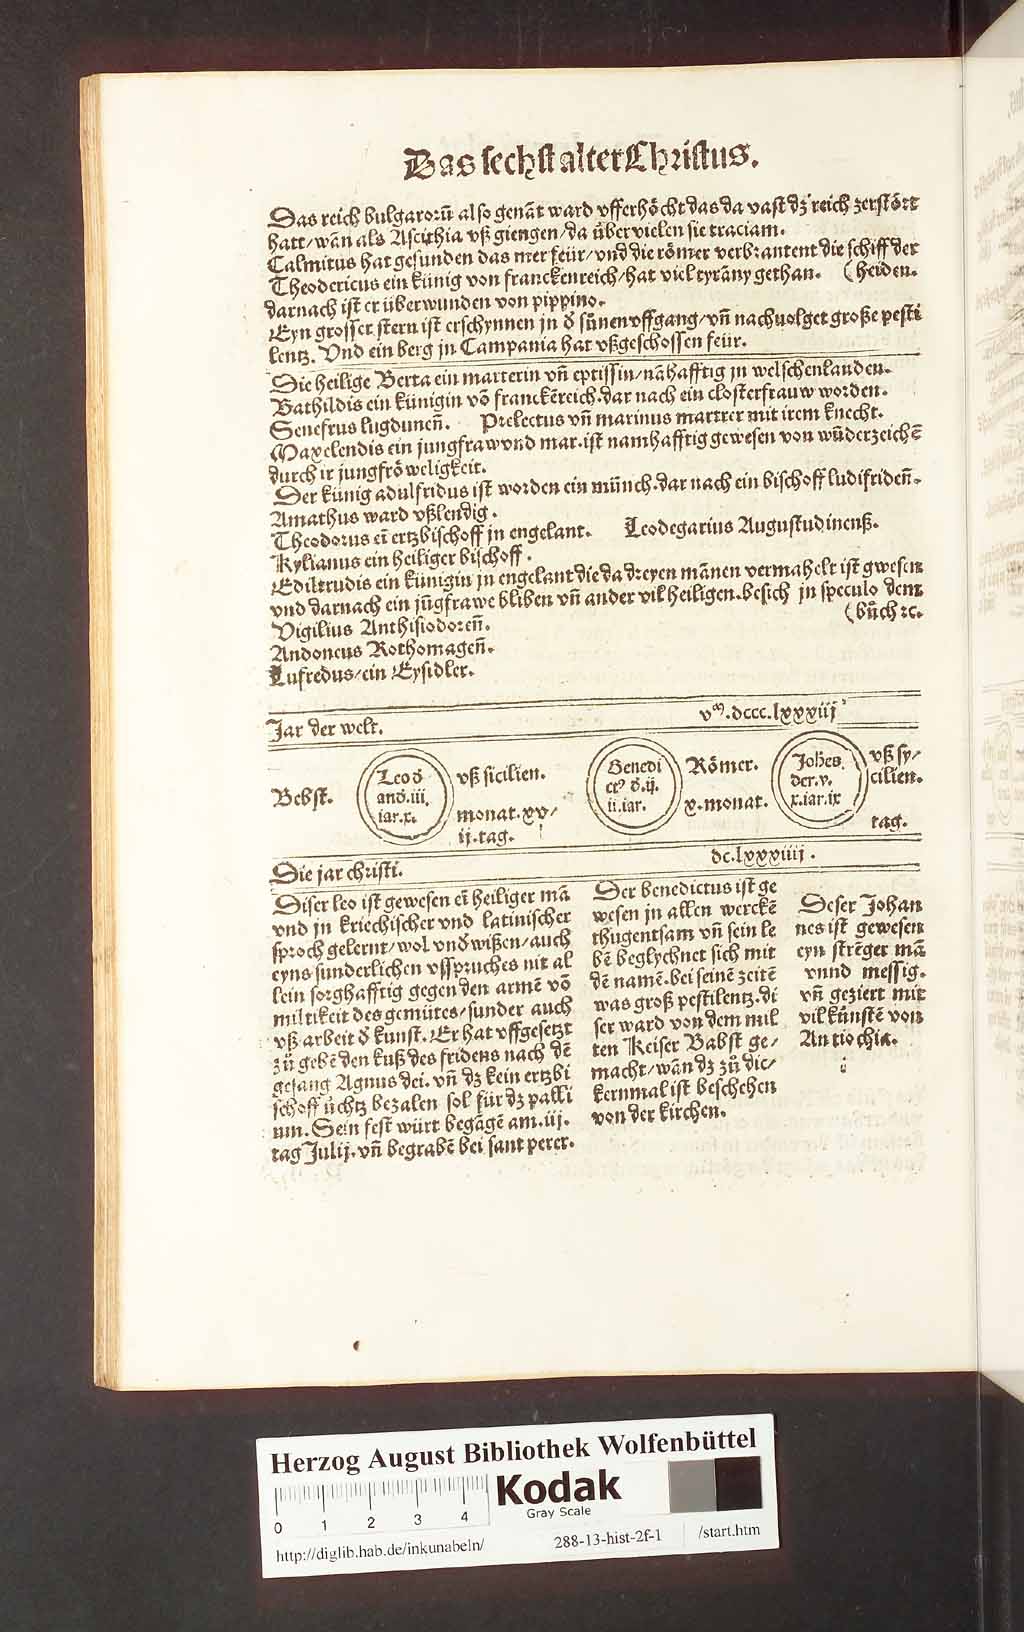 Das sechst alter Christus.
Das reich bulgaroꝛū also genāt ward vfferhöcht das da vast dz reich zerstört
hatt/wān als Ascithia vß giengen/da über vielen sie traciam.
Calmitus hat gefunden das mer feür/vnd die römer verbrantent die schiff der
Theodericus ein künig von franckenreich/hat viel tyrāny gethan. (heiden.
darnach ist er überwunden von pippino.
Eyn grosser stern ist erschynnen jn d̄ sünenvffgang/vn̄ nachuolget große pesti
lentz. Vnd ein berg jn Campania hat vßgeschossen feür.
Die heilige Berta ein marterin vn̄ eptissin/nāhafftig jn welschenlanden.
Bathildis ein künigin vō franckēreich.dar nach ein closterfrauw worden.
Senefrus lugdunen̄. Prelectus vn̄ marinus martrer mit irem knecht.
Maxelendis ein jungfraw vnd mar.ist namhafftig gewesen von wūderzeichē
durch ir jungfröweligkeit.
Der künig adulfridus ist worden ein münch.dar nach ein bischoff ludifriden̄.
Amathus ward vßlendig.
Theodorus ein̄ ertzbischoff jn engelant. Leodegarius Augustudinenß.
Kylianus ein heiliger bischoff.
Ediltrudis ein künigin jn engelant die da dreyen mānen vermahelt ist gwesen
vnd darnach ein jūgfrawe bliben vn̄ ander vil heiligen.besich jn speculo dem
(bůch ꝛc.
Vigilius Anthisiodoren̄.
Andoneus Rothomagen̄.
Lufredus/ein Eysidler.
Jar der welt. vᵐ.dccc.lxxxiij
Bebst.
Leo d̄
and̄.iii.
iar.x.
vß sicilien.
monat.xv/
ij.tag.
Benedi
ctꝰ d̄.ij.
ii.iar.
Römer.
x.monat.
Johēs
der.v.
x.iar.ix
vß sy/
cilien.
tag.
Die jar christi. dc.lxxxiiij.
Diser leo ist gewesen ein̄ heiliger mā
vnd jn kriechischer vnd latinischer
sproch gelernt/wol vnd̄wißen/auch
eyns sunderlichen vsspruches nit al
lein sorghafftig gegen den armē vō
miltikeit des gemütes/sunder auch
vß arbeit d̄ kunst. Er hat vffgesetzt
zů gebē den kuß des fridens nach dē
gesang Agnus dei.vn̄ dz kein ertzbi
schoff ůchtz bezalen sol für dz palli
um. Sein fest würt begāgē am.iij.
tag Julij.vn̄ begrabē bei sant peter.
Der benedictus ist ge
wesen jn allen werckē
thugentsam vn̄ sein le
bē beglychnet sich mit
dē namē.bei seinē zeitē
was groß pestilentz.di
ser ward von dem mil
ten Keiser Babst ge/
macht/wān dz zů dic/
kernmal ist beschehen
von der kirchen.
Deser Johan
nes ist gewesen
eyn strēger mā
vnnd messig.
vn̄ geziert mit
vil künstē von
Antiochia.
Herzog August Bibliothek Wolfenbüttel
Kodak
Gray Scale
0 1 2 3 4
http://diglib.hab.de/inkunabeln/ 288-13-hist-2f-1 /start.htm